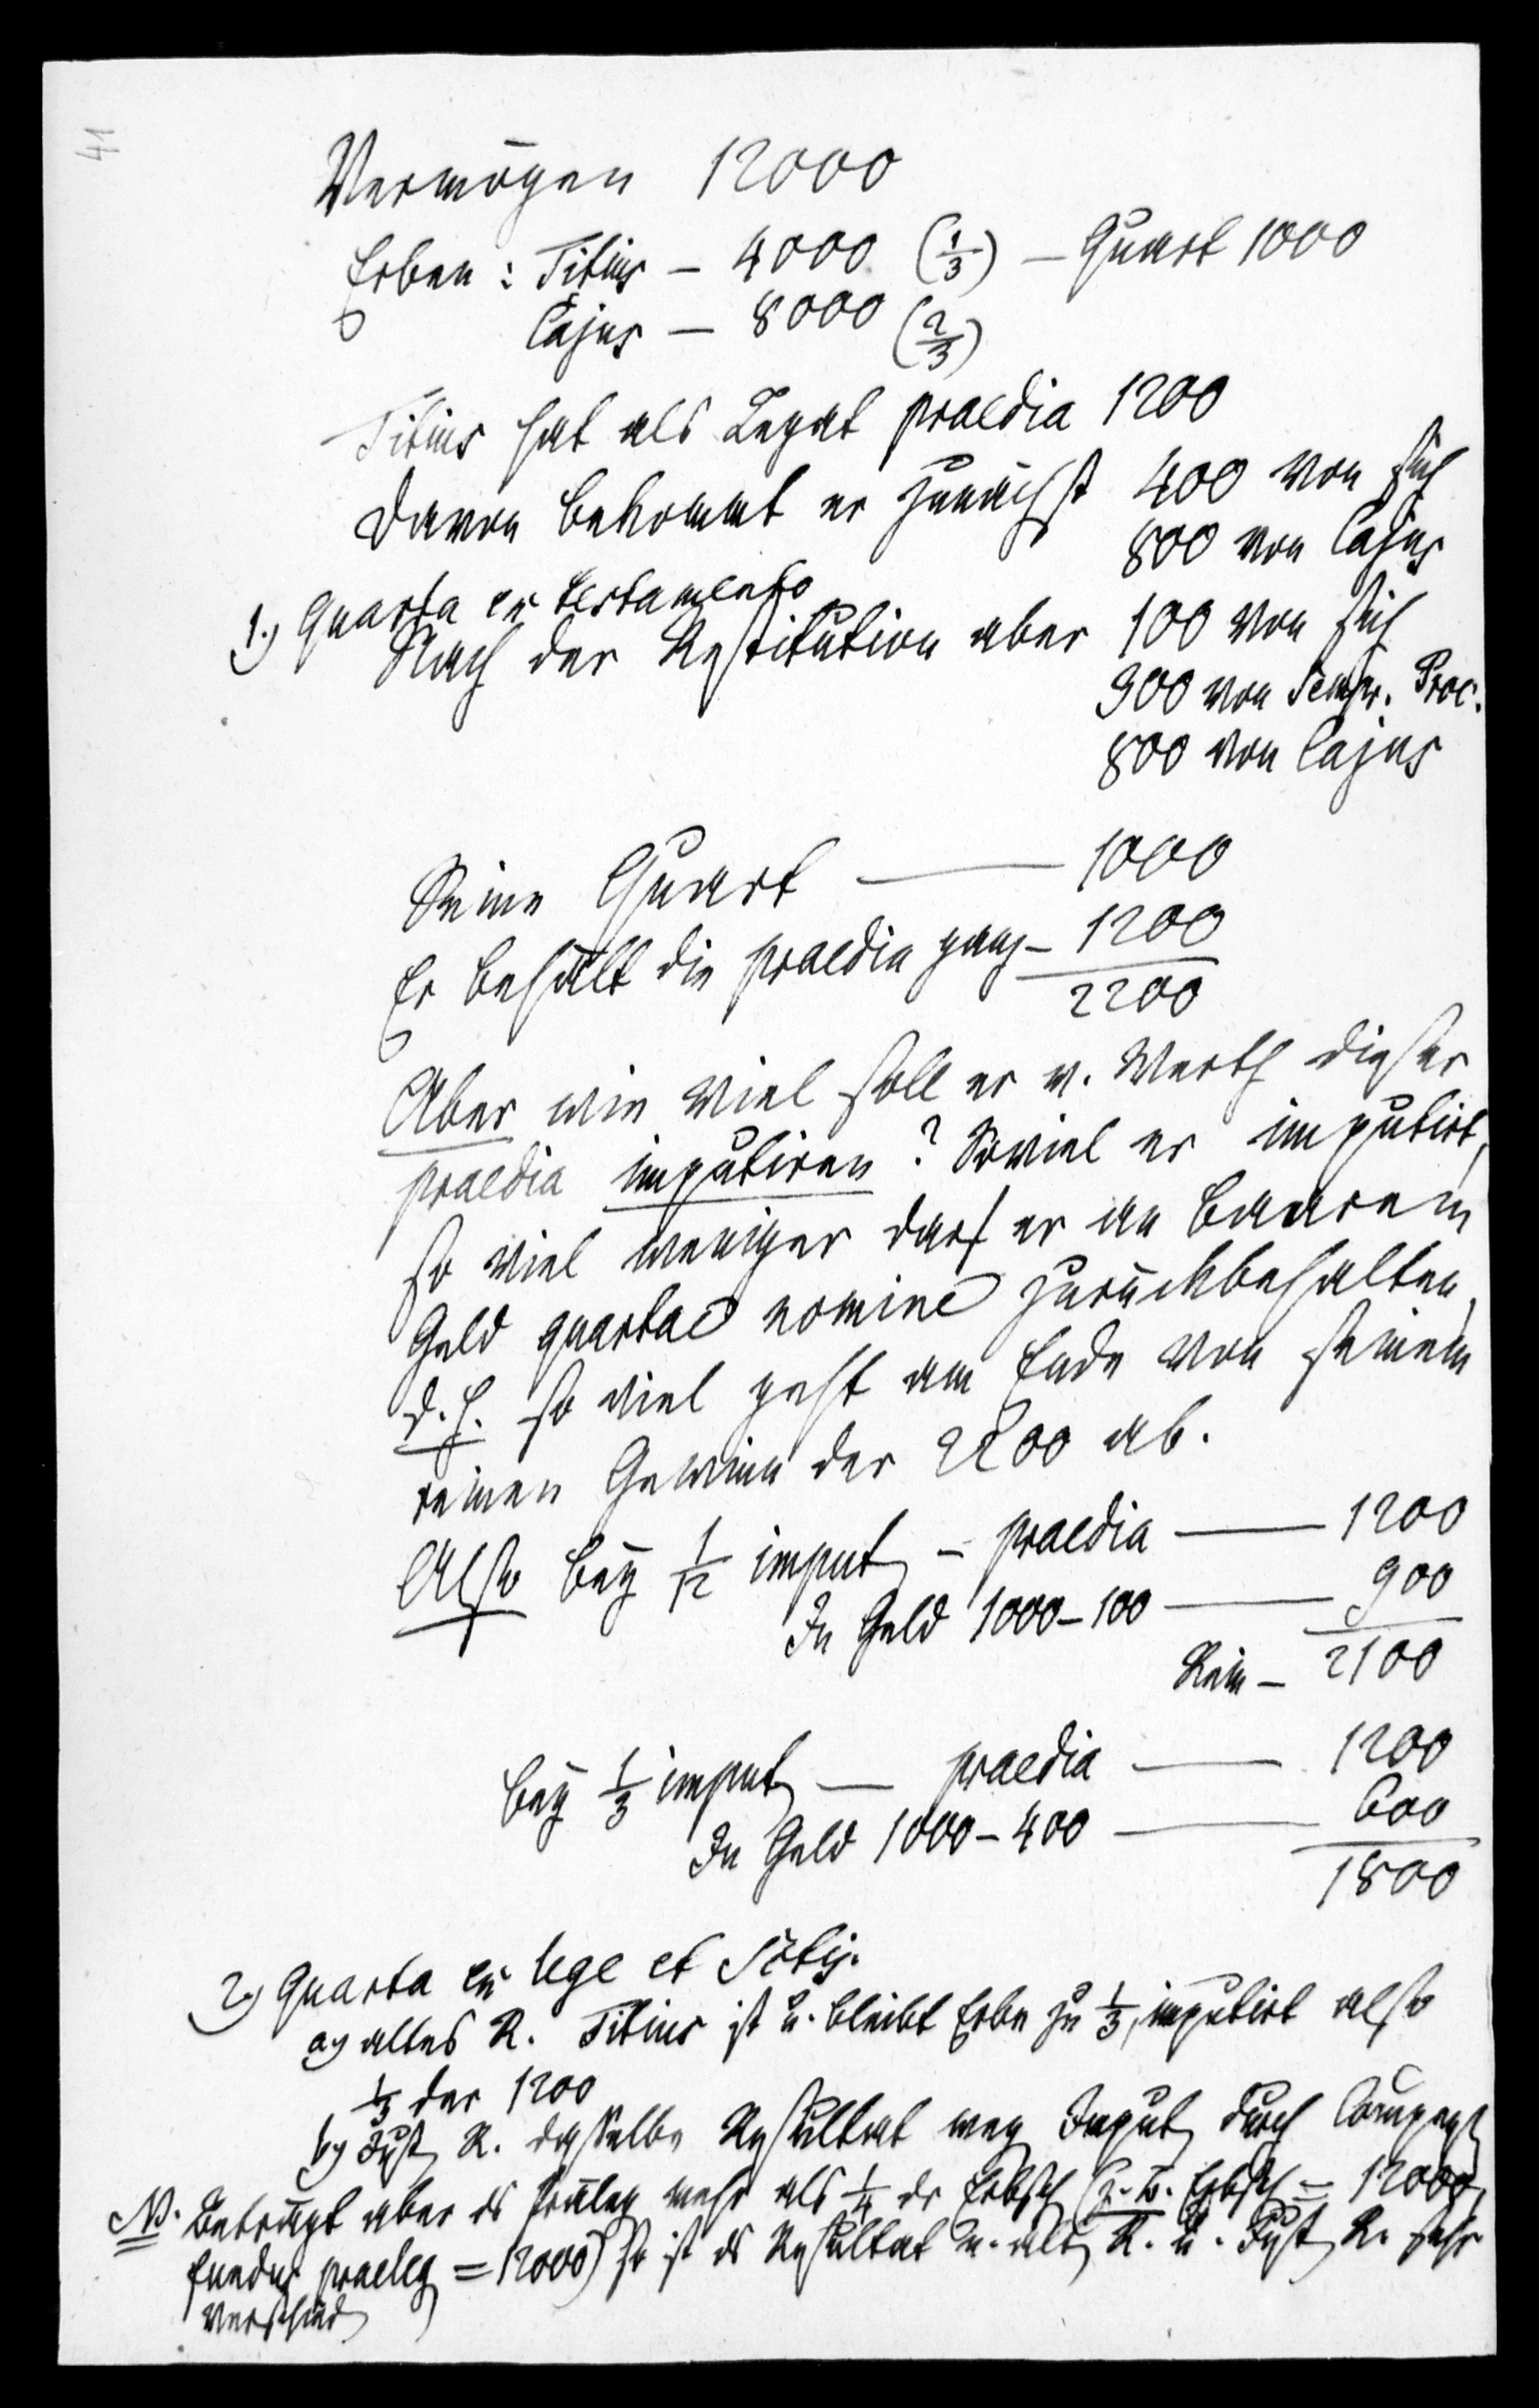 41
Vermögen 12000
Erben: Titius – 4000 (1/3) – Quart 1000
Cajus – 8000 (2/3)
Titius hat als Legat praedia 1200
Davon bekommt er zunächst 400 von sich
800 von Cajus
1.) Quarta ex testamento
Nach der Restitution aber 100 von sich
300 von Sempr. Proc.
800 von Cajus
Seine Quart — 1000
Er behält die praedia ganz – 1200
2200
Aber wie viel soll er v. Werth dieser
praedia imputiren? Soviel er imputirt,
so viel weniger darf er an baarem
Geld quartae nomine zurückbehalten,
d.h. so viel geht am Ende von seinem
reinen Gewinn der 2200 ab.
Also bey 1/12 imput – praedia — 1200
In Geld 1000–100 — 900
Rein – 2100
bey 1/3 imput — praedia — 1200
In Geld 1000–400 — 600
1800
2.) Quarta ex lege et
a) altes R. Titius ist u. bleibt Erbe zu 1/3, imputirt also
1/3 der 1200
b) Just. R. dasselbe Resultat weg Imput durch Compens
N. Beträgt aber ds Präleg mehr als 1/4 dr Erbsch (z.B. Erbsch = 12000,
fundus praeleg = 12000) so ist ds Resultat n. alt R. u. Just R. sehr
verschied